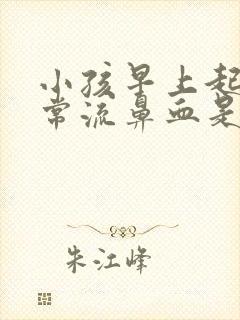 小孩早上起
常流鼻血是
朱江峰